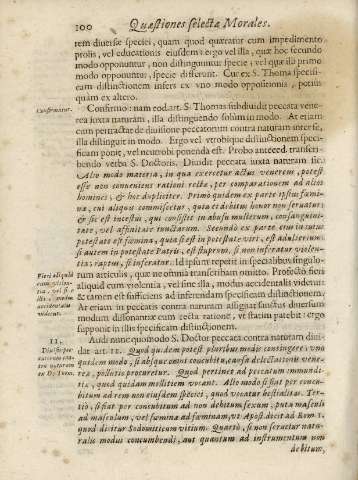 100 Quæstiones selectæ Morales.
tem diversæ speciei, quam quod quæratur cum impedimento
prolis, vel educationis eiusdem: ergo vel illa, quæ hoc secundo
modo opponuntur, non distinguuntur specie; vel quæ illa primo
modo opponuntur, specie differunt. Cur ex S. Thoma specifi-
cam distinctionem infers ex vno modo oppositionis, potius
quàm ex altero.
Confirmatur.
Confirmo: nam eod. art. S. Thomas subdividit peccata vene-
rea iuxta naturam, illa distinguendo solùm in modo. At etiam
cum pertractat de divisione peccatorum contra naturam inter se,
illa distinguit in modo. Ergo vel vtrobique distinctionem speci-
ficam ponit, vel neutrobi ponenda est. Probo anteced. transcri-
bendo verba S. Doctoris. Dividit peccata iuxtà naturam sic.
Alio modo materia, in qua exercetur actus venereus, potest
esse non conveniens rationi rectæ, per comparationem ad alios
homines; & hoc dupliciter. Primo quidem ex parte ipsius fœmi-
næ, cui aliquis commiscetur, quia ei debitus honor non servatur;
& sic est incestus, qui consistit in abusu mulierum, consanguini-
tate, vel affinitate iunctarum. Secundo ex parte eius in cuius
potestate est fœmina, quia si est in potestate viri, est adulterium;
si autem in potestate Patris, est stuprum, si non inferatur violen-
tia; raptus, si inferatur. Id ipsum repetit in specialibus singulo-
rum articulis, quæ ne omnia transcribam omitto. Profectò fieri
Fieri aliquid
cum violen-
tia, vel si-
ne illa, modus
accidentalis
videtur.
aliquid cum violentia, vel sine illa, modus accidentalis videtur:
& tamen est sufficiens ad inferendam specificam distinctionem.
At etiam in peccatis contra naturam assignat sanctus diversum
modum dissonantiæ cum recta ratione, vt statim patebit: ergo
supponit in illis specificam distinctionem.
11.
Audi nunc quomodo S. Doctor peccata contra naturam divi-
dit art. 11. Quod quidem potest pluribus modis contingere: vno
quidem modo, si absque omni concubitu, causa delectationis vene-
reæ, pollutio procuretur. Quod pertinet ad peccatum immundi-
tiæ, quod quidam mollitiem vocant. Alio modo si fiat per concu-
bitum ad rem non eiusdem speciei, quod vocatur bestialitas. Ter-
tio, si fiat per concubitum ad non debitum sexum, puta masculi
ad masculum, vel fœminæ ad fœminam, vt Apost. dicit ad Rom. 1.
quod dicitur Sodomiticum vitium. Quarto, si non servetur natu-
ralis modus concumbendi, aut quantum ad instrumentum non
debitum,